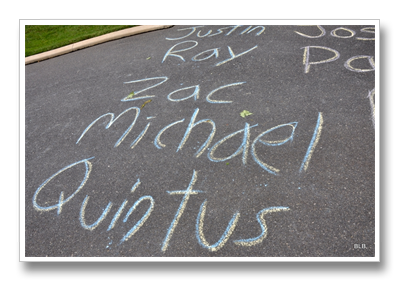 Justin
Ray
Zac
Michael
Quintus
Jos
Pa
BLB